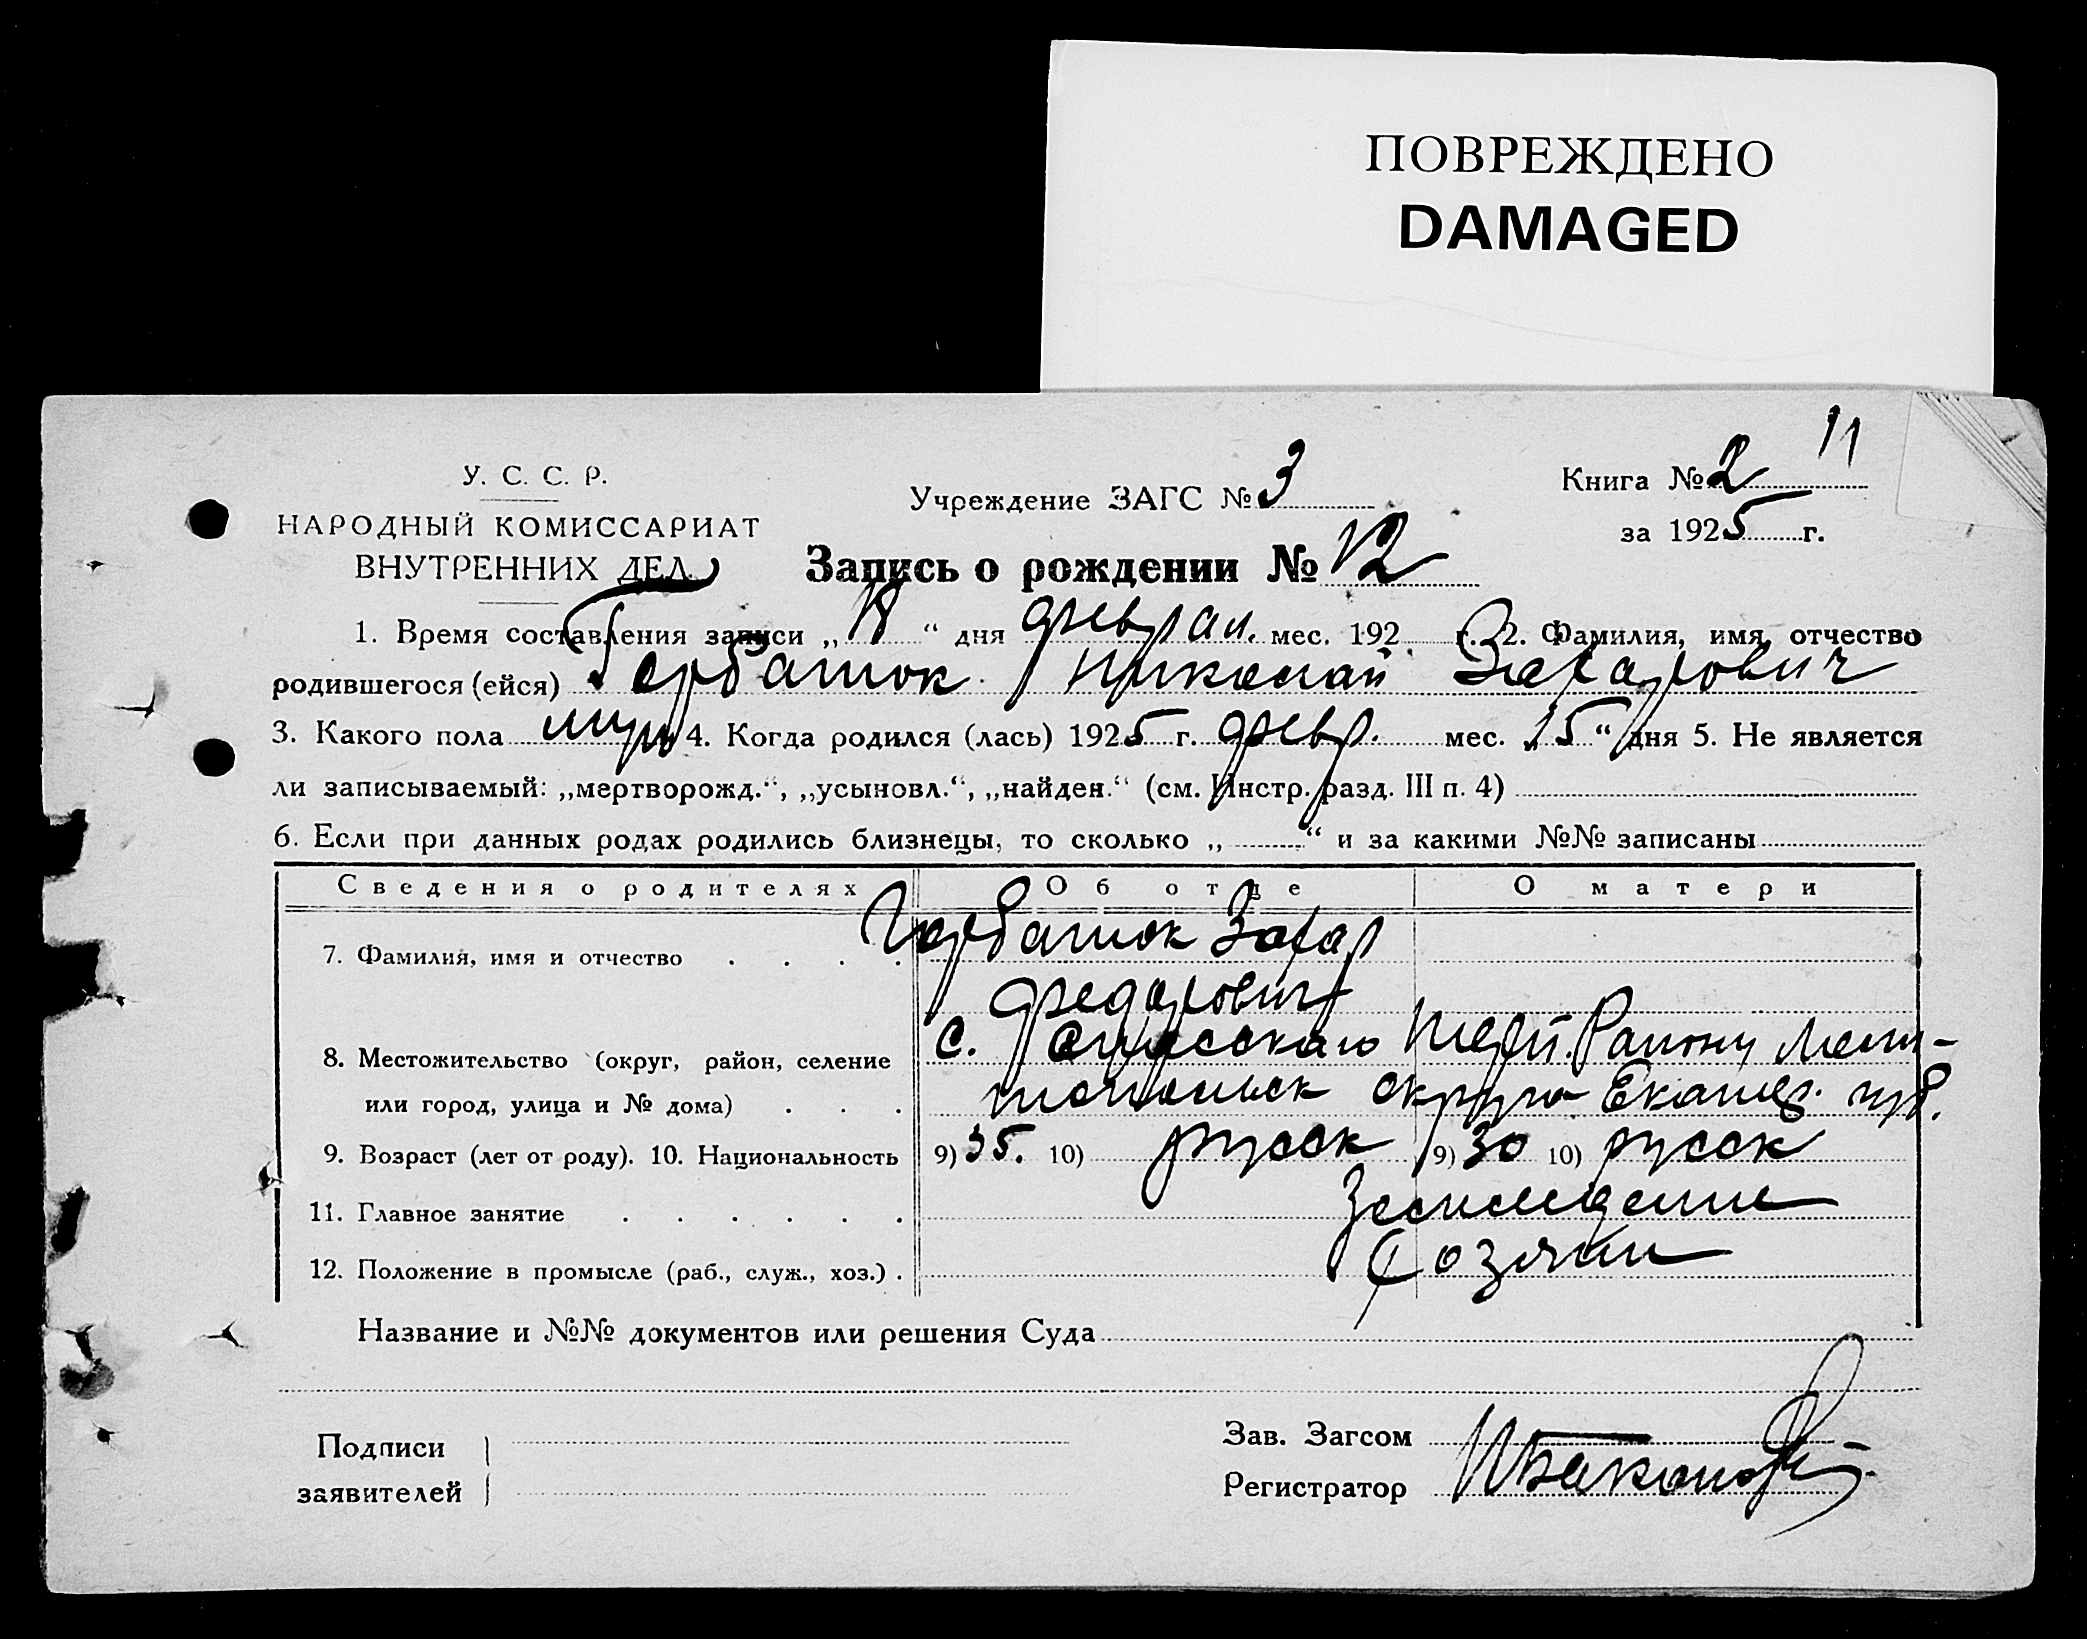 ПОВРЕЖДЕНО
DAMAGED
11
У. С. С. Р.
НАРОДНЫЙ КОМИССАРИАТ
ВНУТРЕННИХ ДЕЛ
Учреждение ЗАГС № 3
Книга № 2
за 1925 г.
Запись о рождении № 12
1. Время составления записи „18“ дня феврал. мес. 192 г. 2. Фамилия, имя, отчество
родившегося (ейся) Горбатюк Николай Захарович
3. Какого пола муж 4. Когда родился (лась) 1925 г. февр. мес. „15“ дня 5. Не является
ли записываемый: „мертворожд.“, „усыновл.“, „найден.“ (см. Инстр. разд. III п. 4)
6. Если при данных родах родились близнецы, то сколько „ “ и за какими №№ записаны
Сведения о родителях Об отце О матери
7. Фамилия, имя и отчество . . . . Горбатюк Захар
Федорович
8. Местожительство (округ, район, селение с. Району Мели-
или город, улица и № дома) . . . топольск округа Екатер. губ.
9. Возраст (лет от роду). 10. Национальность 9) 35. 10) русск 9) 30 10) русск
11. Главное занятие . . . . . . Земледелие
12. Положение в промысле (раб., служ., хоз.) . Хозяин
Название и №№ документов или решения Суда
Подписи
заявителей
Зав. Загсом
Регистратор